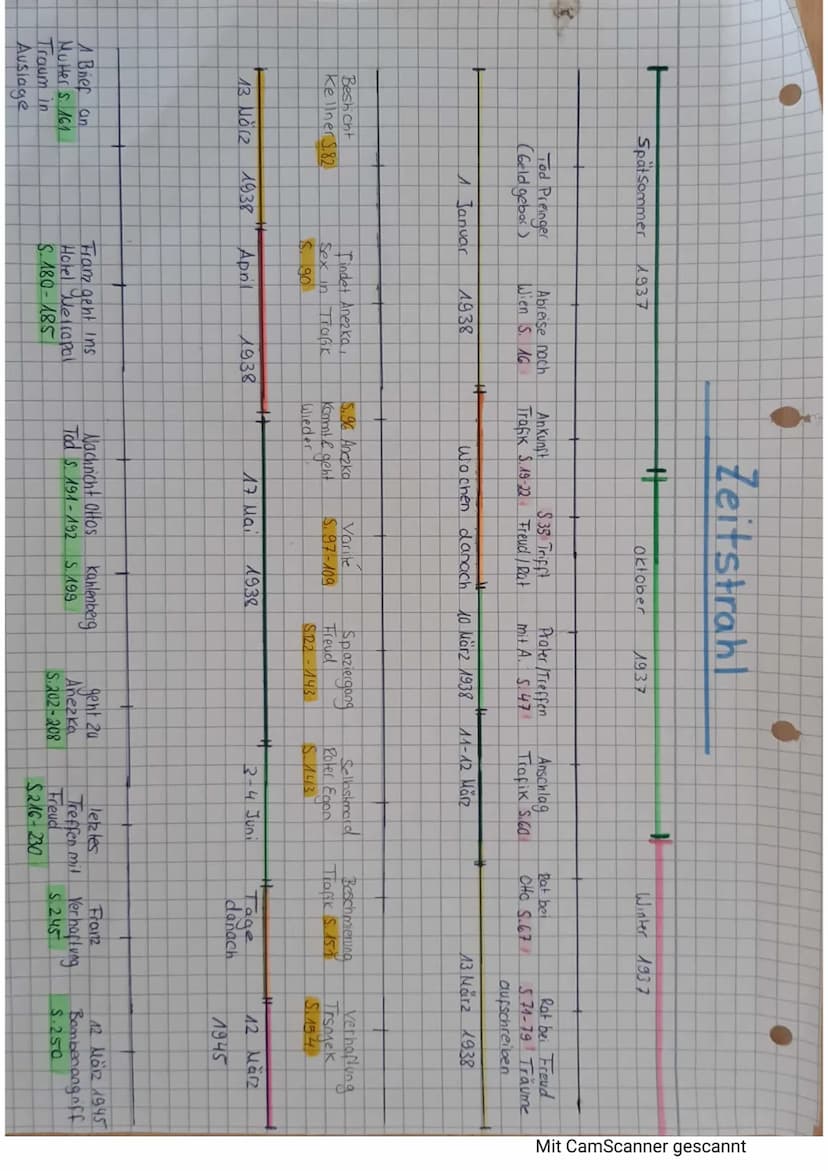 Zeitstrahl
Spätsommer 1937
Oktober 1937
Winter 1937
Tod Preininger
(Geldgeber)
Abreise nach
Wien S. 16
Ankunft
Trafik S.19-22
S 38 Trifft
Freud/Rat
Prater/Treffen
mit A. S.47
Anschlag
Trafik S.60
Rat bei
Otto S.67
Rat bei Freud
S.71-79 Träume
aufschreiben
1 Januar 1938
Wochen danach
10 März 1938
11-12 März
13 März 1938
Besticht
Kellner S.82
Findet Anezka,
Sex in Trafik
S. 90
S.96 Anezka
kommt & geht
wieder
Varité
S.97-109
Spaziergang
Freud
S.122-143
Selbstmord
Roter Egon
S.143
Beschmierung
Trafik
Verhaftung
Trsnjek
13 März 1938
April 1938
17 Mai 1938
3-4 Juni
Tage
danach
12 März
1945
1 Brief an
Mutter S.161
Traum in
Auslage
Franz geht ins
Hotel
S.180-185
Nachricht Ottos
Tod S.191-192
Kahlenberg
S.199
geht zu
Anezka
S.202-208
letztes
Treffen mit
Freud
S.216-230
Franz
Verhaftung
S.245
12 März 1945
Bombenangriff
S.250
Mit CamScanner gescannt